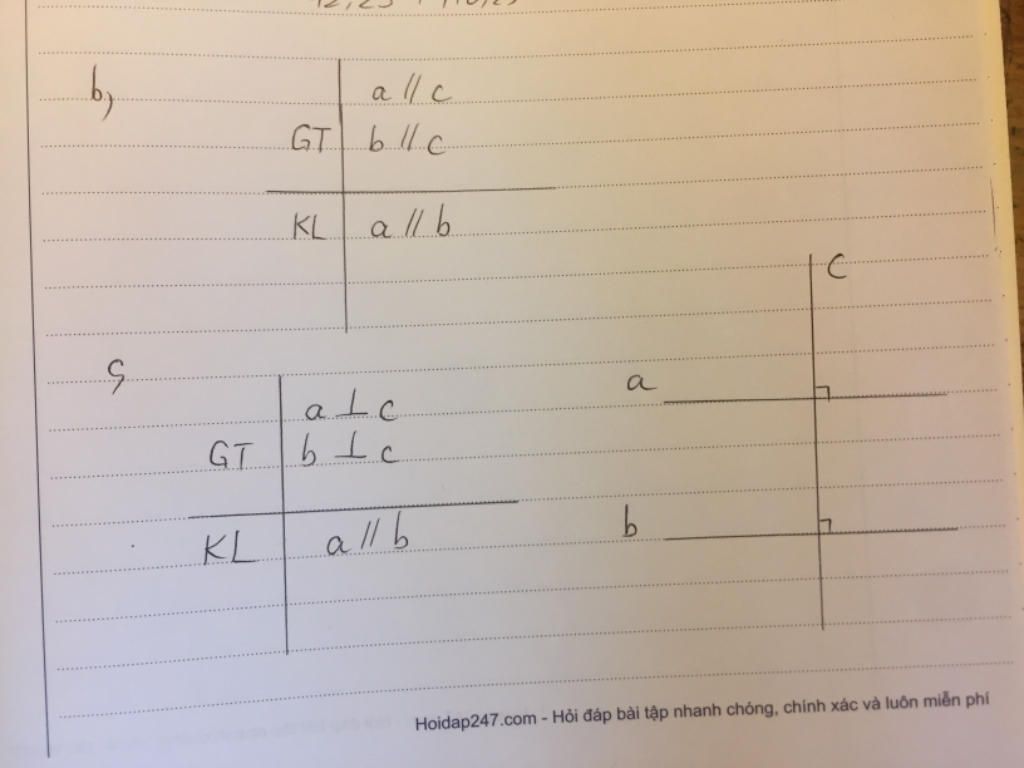 b,
a // c
GT b // c
KL a // b
c
c,
a
a ⊥ c
GT b ⊥ c
b
KL a // b
Hoidap247.com - Hỏi đáp bài tập nhanh chóng, chính xác và luôn miễn phí